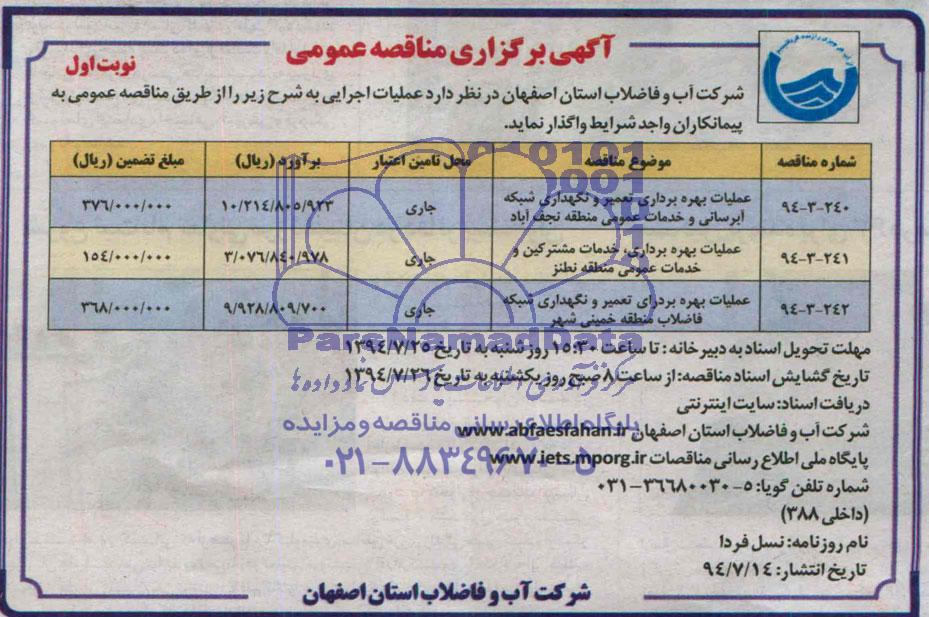 آگهی برگزاری مناقصه عمومی
نوبت اول
شرکت آب و فاضلاب استان اصفهان در نظر دارد عملیات اجرایی به شرح زیر را از طریق مناقصه عمومی به
پیمانکاران واجد شرایط واگذار نماید.
شماره مناقصه	موضوع مناقصه	محل تامین اعتبار	برآورد (ریال)	مبلغ تضمین (ریال)
۹۴-۳-۲۴۰	عملیات بهره برداری تعمیر و نگهداری شبکه	جاری	۱۰/۲۱٤/۸۰۵/۹۲۳	۳۷٦/۰۰۰/۰۰۰
آبرسانی و خدمات عمومی منطقه نجف آباد
۹٤-۳-۲٤۱	عملیات بهره برداری، خدمات مشترکین و	جاری	۳/۰۷٦/۸٤۰/۹۷۸	۱۵٤/۰۰۰/۰۰۰
خدمات عمومی منطقه نطنز
۹٤-۳-۲٤۲	عملیات بهره بردرای تعمیر و نگهداری شبکه	جاری	۹/۹۲۸/۸۰۹/۷۰۰	۳٦۸/۰۰۰/۰۰۰
فاضلاب منطقه خمینی شهر
مهلت تحویل اسناد به دبیرخانه: تا ساعت ۱۵:۳۰ روز شنبه به تاریخ ۱۳۹٤/۷/۲۵
تاریخ گشایش اسناد مناقصه: از ساعت ۸ صبح روز یکشنبه به تاریخ ۱۳۹٤/۷/۲٦
دریافت اسناد: سایت اینترنتی
شرکت آب و فاضلاب استان اصفهان www.abfaesfahan.ir
پایگاه ملی اطلاع رسانی مناقصات www.iets.mporg.ir
شماره تلفن گویا: ۵-۰۳۱-۳٦٦۸۰۰۳۰
(داخلی ۳۸۸)
نام روزنامه: نسل فردا
تاریخ انتشار: ۹٤/۷/۱٤
شرکت آب و فاضلاب استان اصفهان
ParsNamadData
پایگاه اطلاع رسانی مناقصه و مزایده
۰۲۱-۸۸۳٤۹٦۷۰-۵